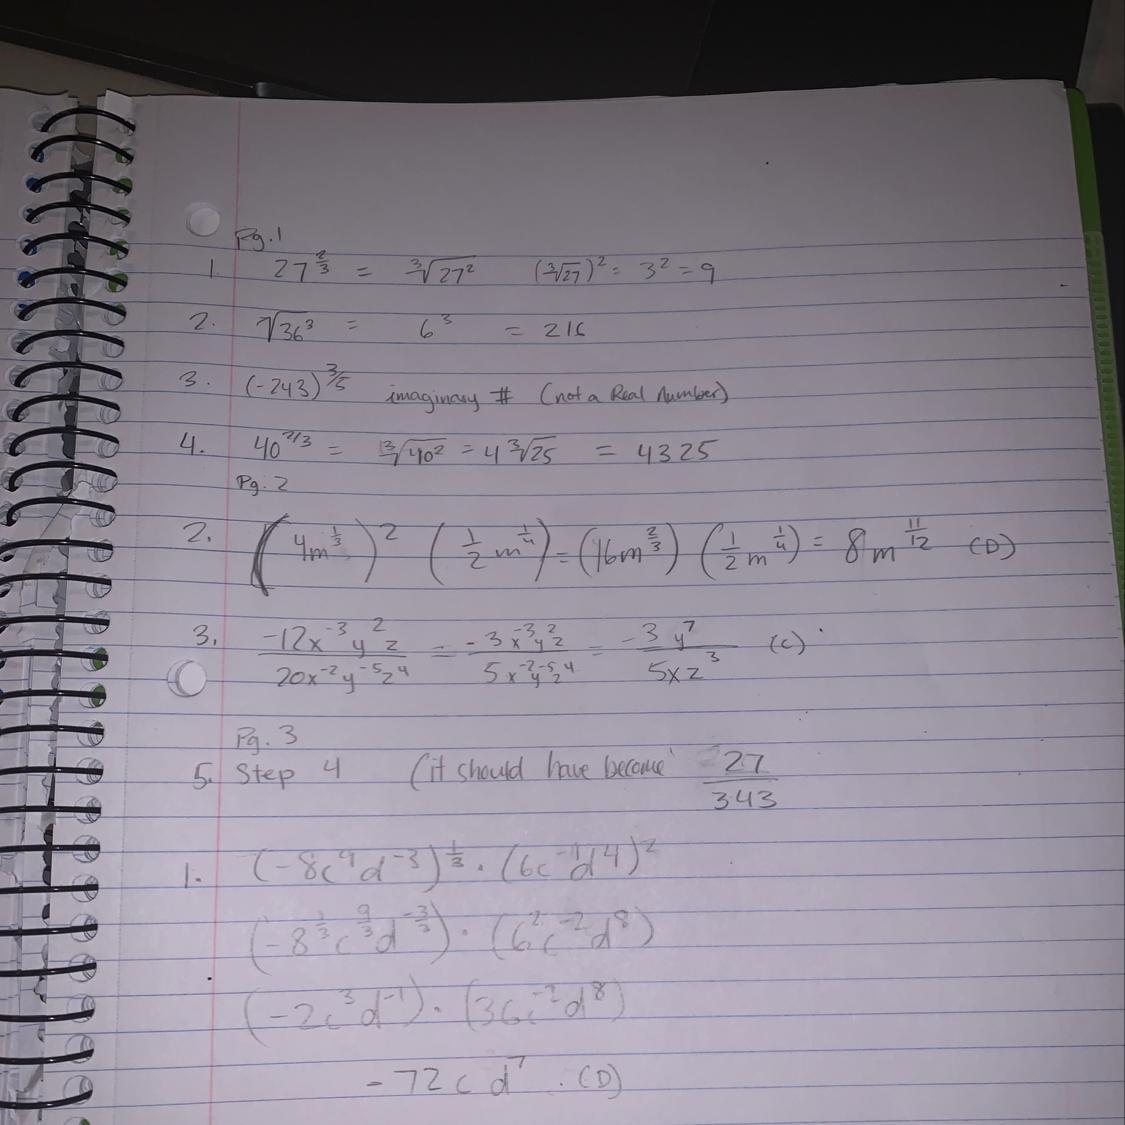 Pg.1
1. 27^{2/3} = ∛27² (∛27)² = 3² = 9
2. √36³ = 6³ = 216
3. (-243)^{3/5} imaginary # (not a Real Number)
4. 40^{2/3} = ∛40² = 4∛25 = 4325
Pg. 2
2. (4m^{1/3})² (1/2 m^{1/4}) = (16m^{2/3}) (1/2 m^{1/4}) = 8m^{11/12} (D)
3. -12x⁻³y²z / 20x⁻²y⁻⁵z⁴ = -3x⁻³y²z / 5x⁻²y⁻⁵z⁴ = -3y⁷ / 5xz³ (C)
Pg. 3
5. Step 4 (it should have become 27/343
1. (-8c⁹d⁻³)^{1/3} · (6c⁻¹d⁴)²
(-8^{1/3}c^{9/3}d^{-3/3}) · (6²c⁻²d⁸)
(-2c³d⁻¹) · (36c⁻²d⁸)
-72cd⁷ . (D)